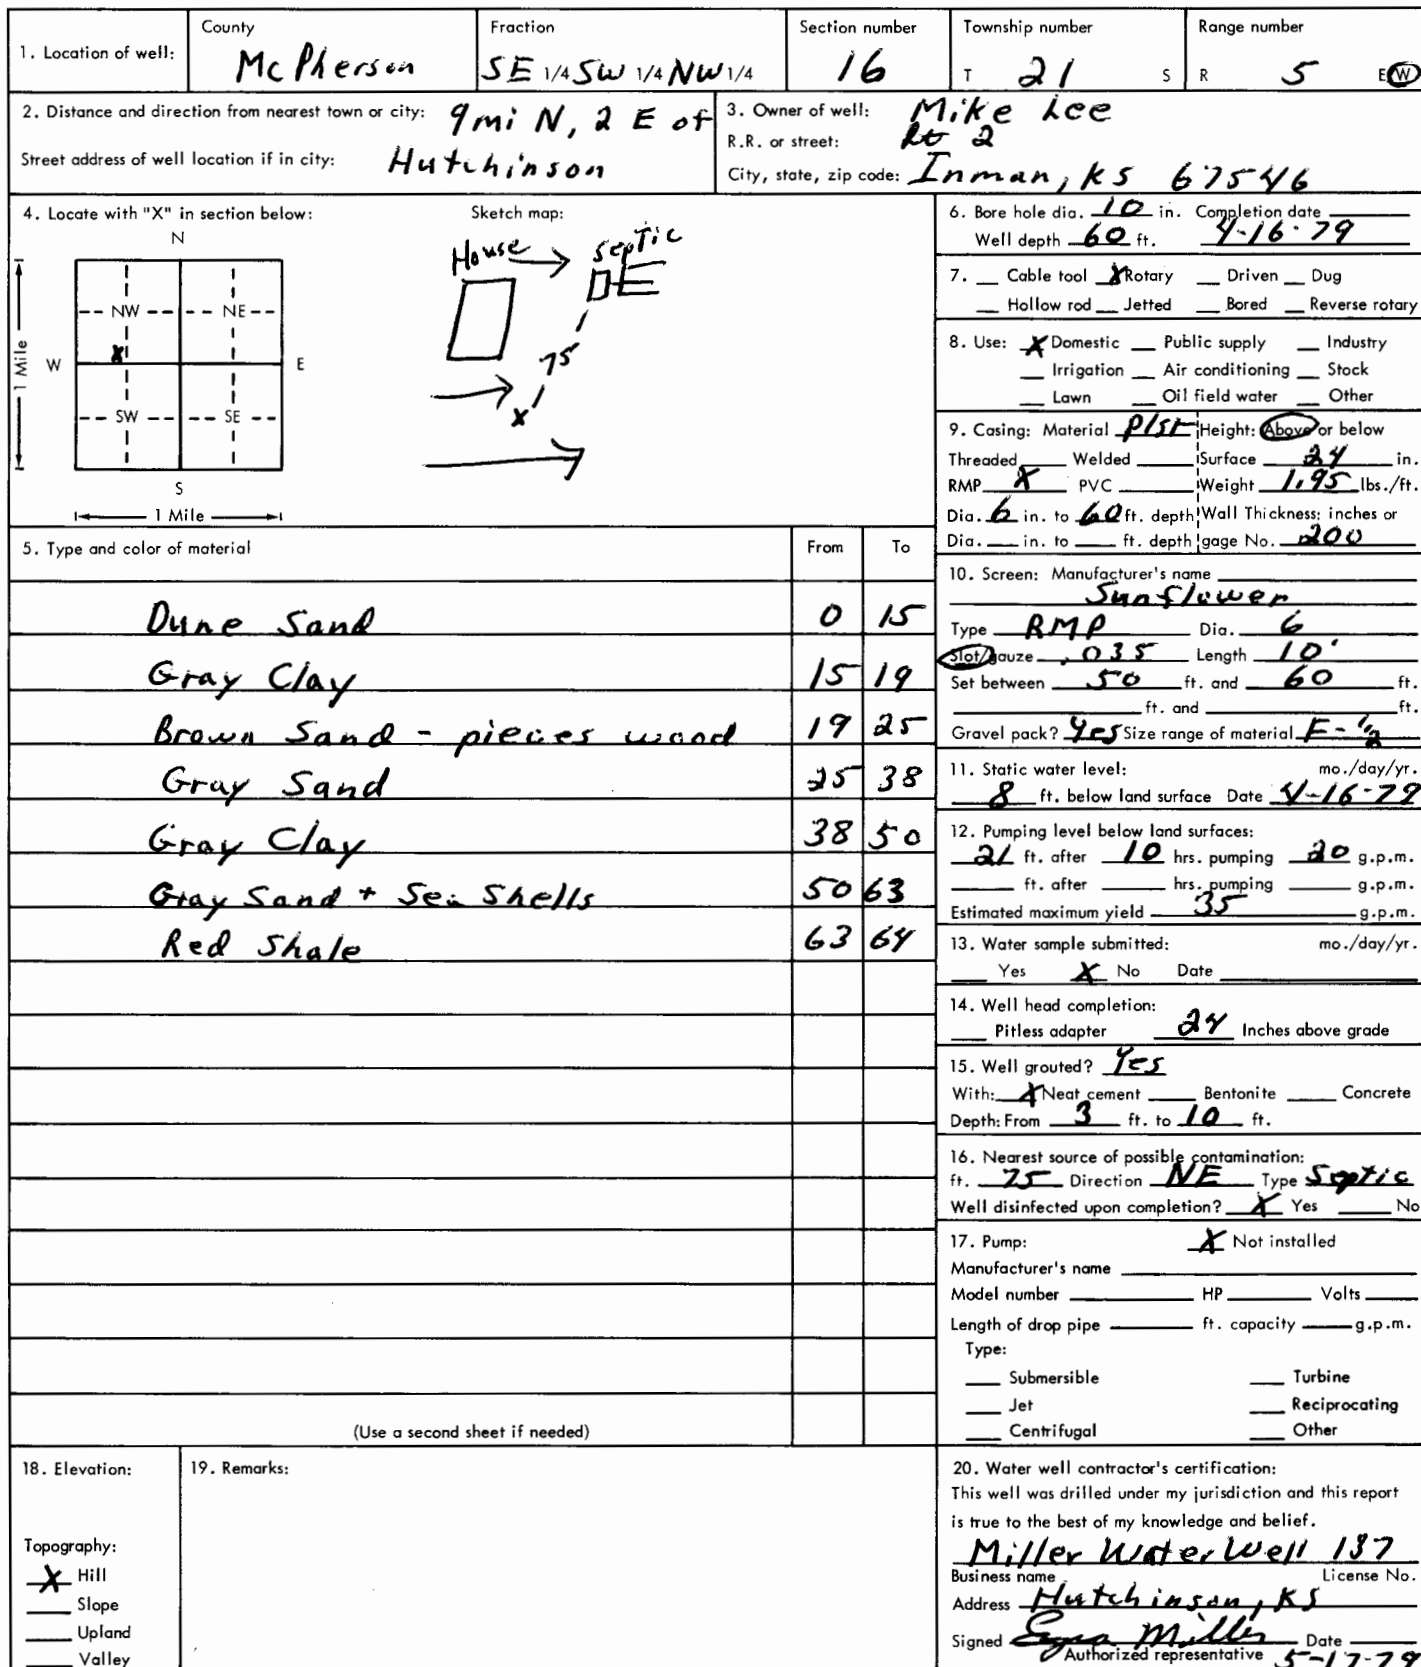 1. Location of well:
County
McPherson
Fraction
SE 1/4 SW 1/4 NW 1/4
Section number
16
Township number
T 21 S
Range number
R 5 E W
2. Distance and direction from nearest town or city: 9 mi N, 2 E of
Street address of well location if in city: Hutchinson
3. Owner of well: Mike Lee
R.R. or street: Rt 2
City, state, zip code: Inman, KS 67546
4. Locate with "X" in section below:
N
NW NE
X
W E
SW SE
S
1 Mile
1 Mile
Sketch map:
House Septic
75
X
5. Type and color of material From To
Dune Sand 0 15
Gray Clay 15 19
Brown Sand - pieces wood 19 25
Gray Sand 25 38
Gray Clay 38 50
Gray Sand + Sea Shells 50 63
Red Shale 63 64
(Use a second sheet if needed)
6. Bore hole dia. 10 in. Completion date
Well depth 60 ft. 4-16-79
7. __ Cable tool X Rotary __ Driven __ Dug
__ Hollow rod __ Jetted __ Bored __ Reverse rotary
8. Use: X Domestic __ Public supply __ Industry
__ Irrigation __ Air conditioning __ Stock
__ Lawn __ Oil field water __ Other
9. Casing: Material Plst Height: Above or below
Threaded __ Welded __ Surface 24 in.
RMP X PVC __ Weight 1.95 lbs./ft.
Dia. 6 in. to 60 ft. depth Wall Thickness: inches or
Dia. __ in. to __ ft. depth gage No. .200
10. Screen: Manufacturer's name
Sunflower
Type RMP Dia. 6
Slot/gauze .035 Length 10'
Set between 50 ft. and 60 ft.
__ ft. and __ ft.
Gravel pack? Yes Size range of material F-1/2
11. Static water level: mo./day/yr.
8 ft. below land surface Date 4-16-79
12. Pumping level below land surfaces:
21 ft. after 10 hrs. pumping 20 g.p.m.
__ ft. after __ hrs. pumping __ g.p.m.
Estimated maximum yield 35 g.p.m.
13. Water sample submitted: mo./day/yr.
__ Yes X No Date
14. Well head completion:
__ Pitless adapter 24 Inches above grade
15. Well grouted? Yes
With: X Neat cement __ Bentonite __ Concrete
Depth: From 3 ft. to 10 ft.
16. Nearest source of possible contamination:
ft. 75 Direction NE Type Septic
Well disinfected upon completion? X Yes __ No
17. Pump: X Not installed
Manufacturer's name
Model number __ HP __ Volts __
Length of drop pipe __ ft. capacity __ g.p.m.
Type:
__ Submersible __ Turbine
__ Jet __ Reciprocating
__ Centrifugal __ Other
18. Elevation:
Topography:
X Hill
__ Slope
__ Upland
__ Valley
19. Remarks:
20. Water well contractor's certification:
This well was drilled under my jurisdiction and this report
is true to the best of my knowledge and belief.
Miller Water Well 137
Business name License No.
Address Hutchinson, KS
Signed Miller Date
Authorized representative 5-17-79